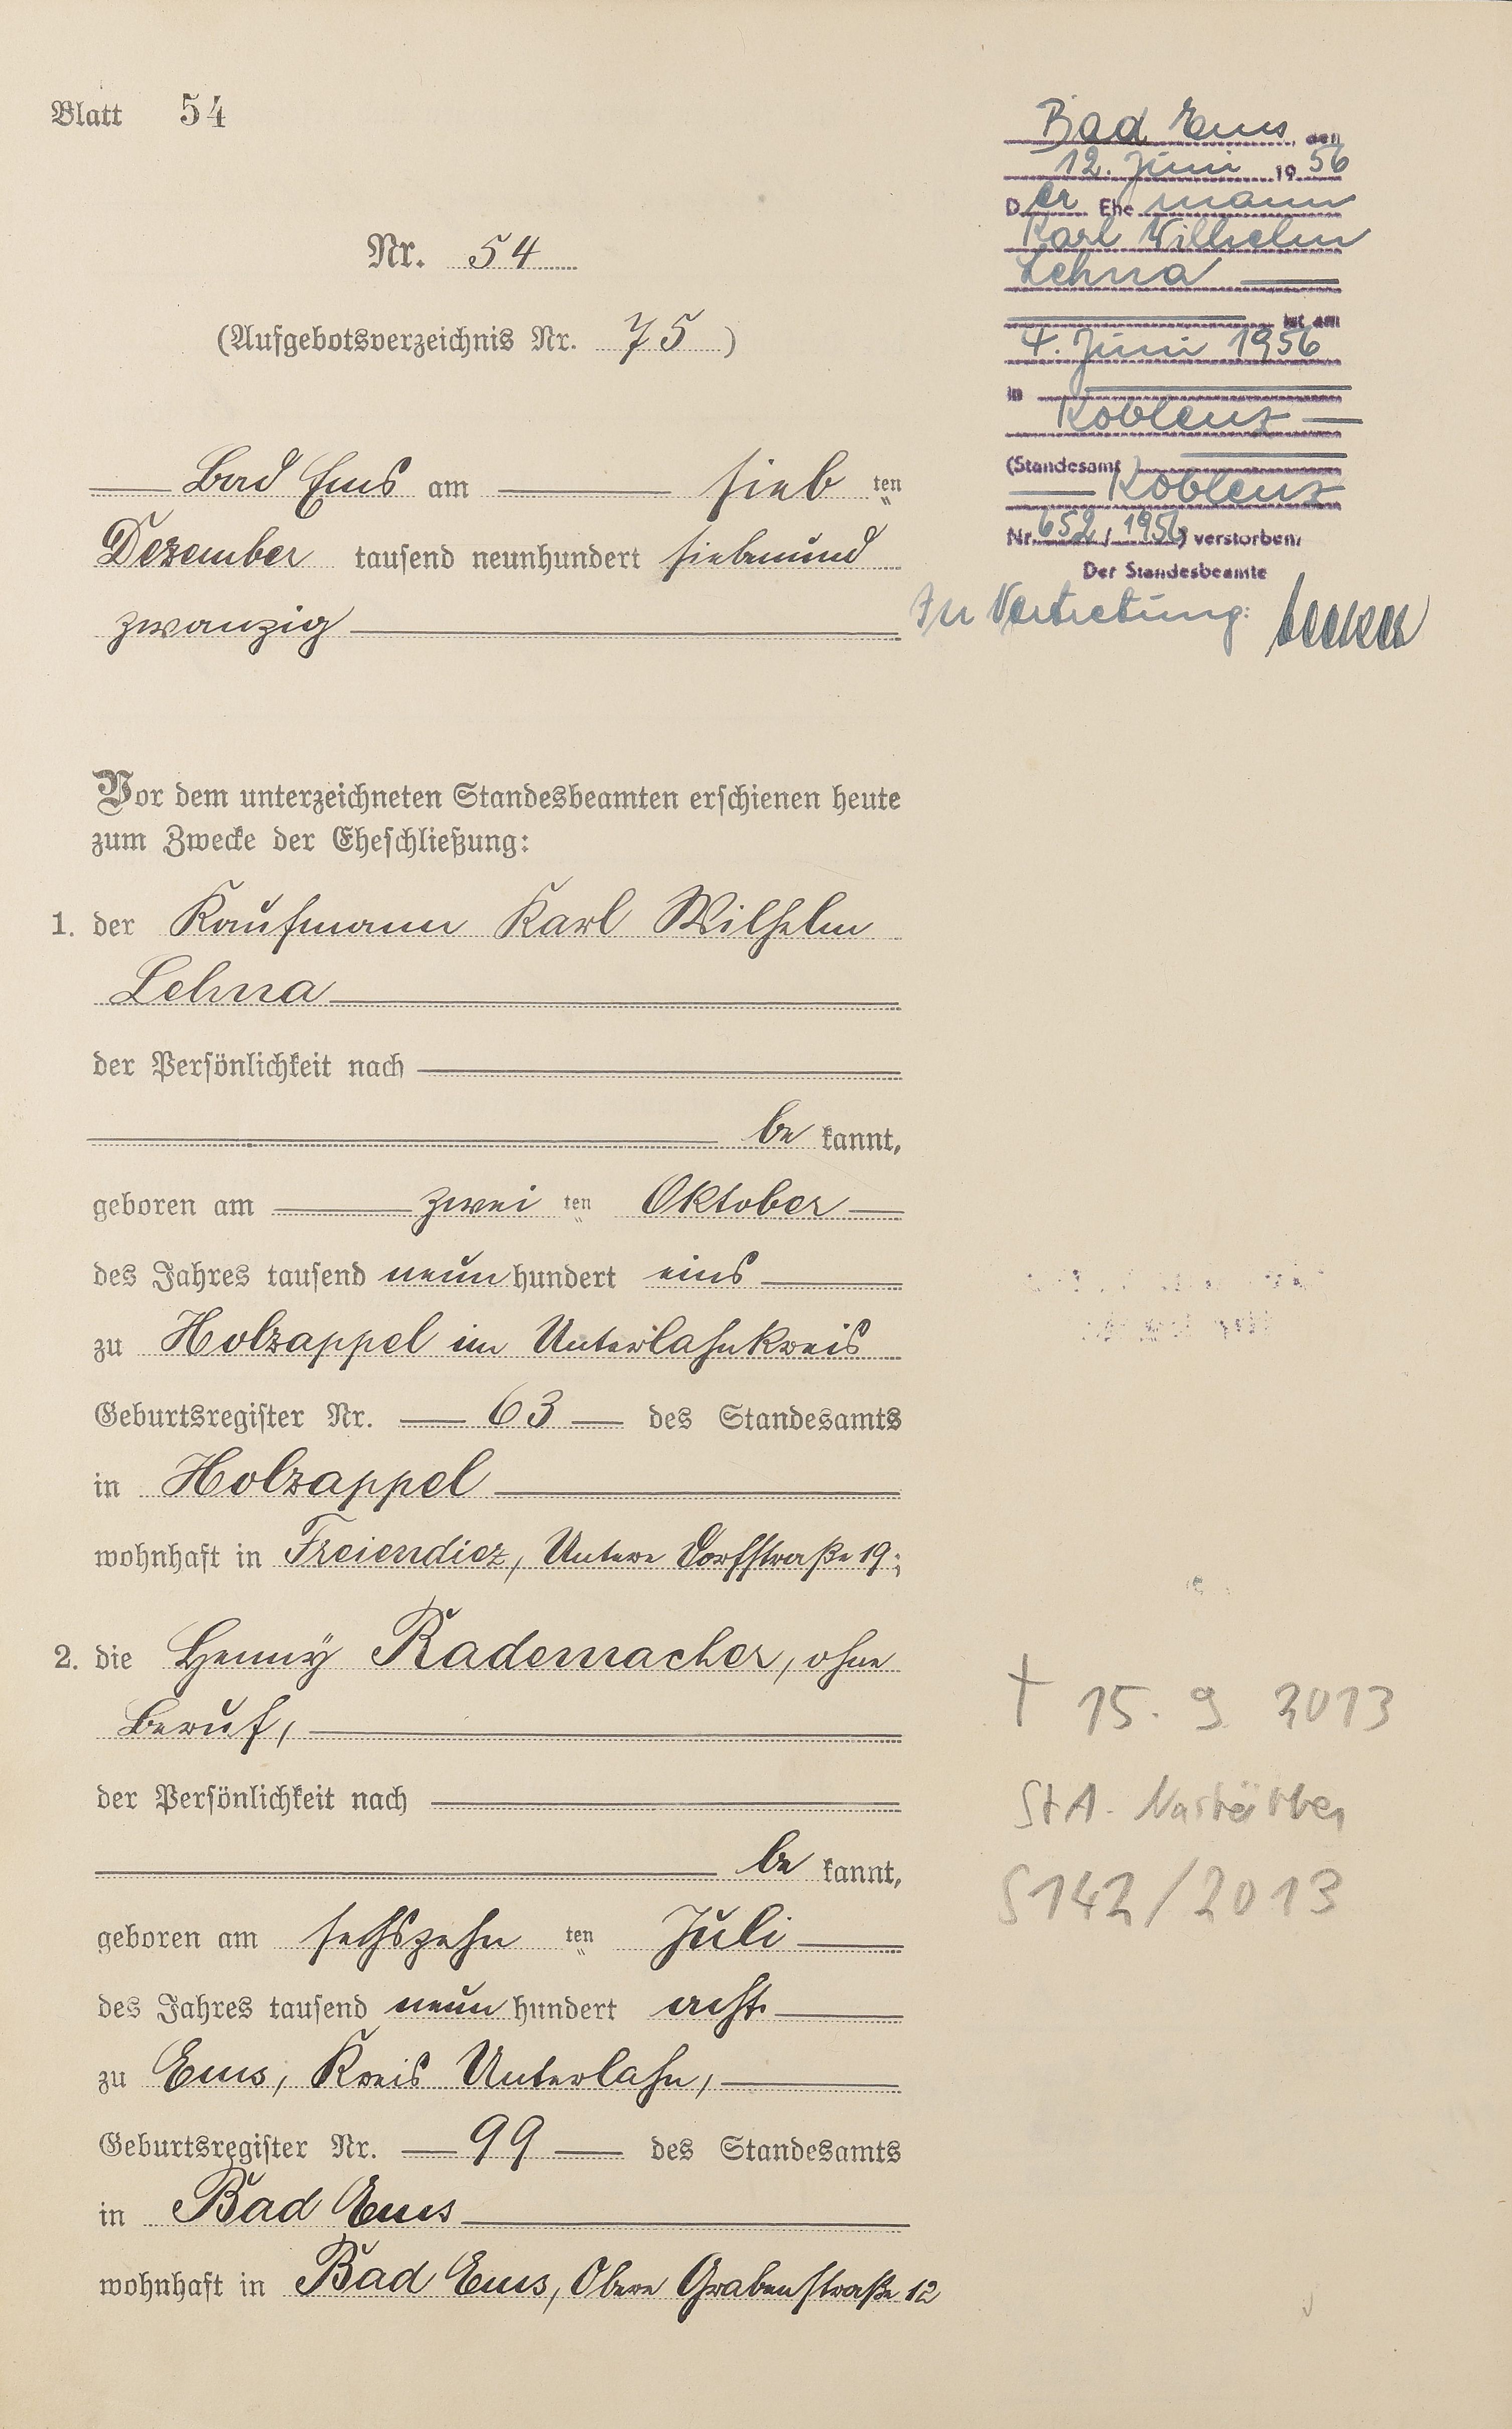 Blatt 54
Nr. 54
(Aufgebotsverzeichnis Nr. 75)
Bad Ems am sieb ten
Dezember tausend neunhundert siebenund
zwanzig
Vor dem unterzeichneten Standesbeamten erschienen heute
zum Zwecke der Eheschließung:
1. der Kaufmann Karl Wilhelm
Lehna
der Persönlichkeit nach
be kannt,
geboren am zwei ten Oktober
des Jahres tausend neun hundert eins
zu Holzappel im Unterlahnkreis
Geburtsregister Nr. 63 des Standesamts
in Holzappel
wohnhaft in Freiendiez, Untere Dorfstraße 19;
2. die Henny Rademacher, ohne
Beruf,
der Persönlichkeit nach
be kannt,
geboren am sechszehn ten Juli
des Jahres tausend neun hundert acht
zu Ems, Kreis Unterlahn,
Geburtsregister Nr. 99 des Standesamts
in Bad Ems
wohnhaft in Bad Ems, Obere Grabenstraße 12
Bad Ems, den
12. Juni 1956
Der Ehemann
Karl Wilhelm
Lehna
ist am
4. Juni 1956
in
Koblenz
(Standesamt
Koblenz
Nr. 652 / 1956) verstorben.
Der Standesbeamte
In Vertretung:
† 15. 9 2013
StA. Nastätten
S 142/2013